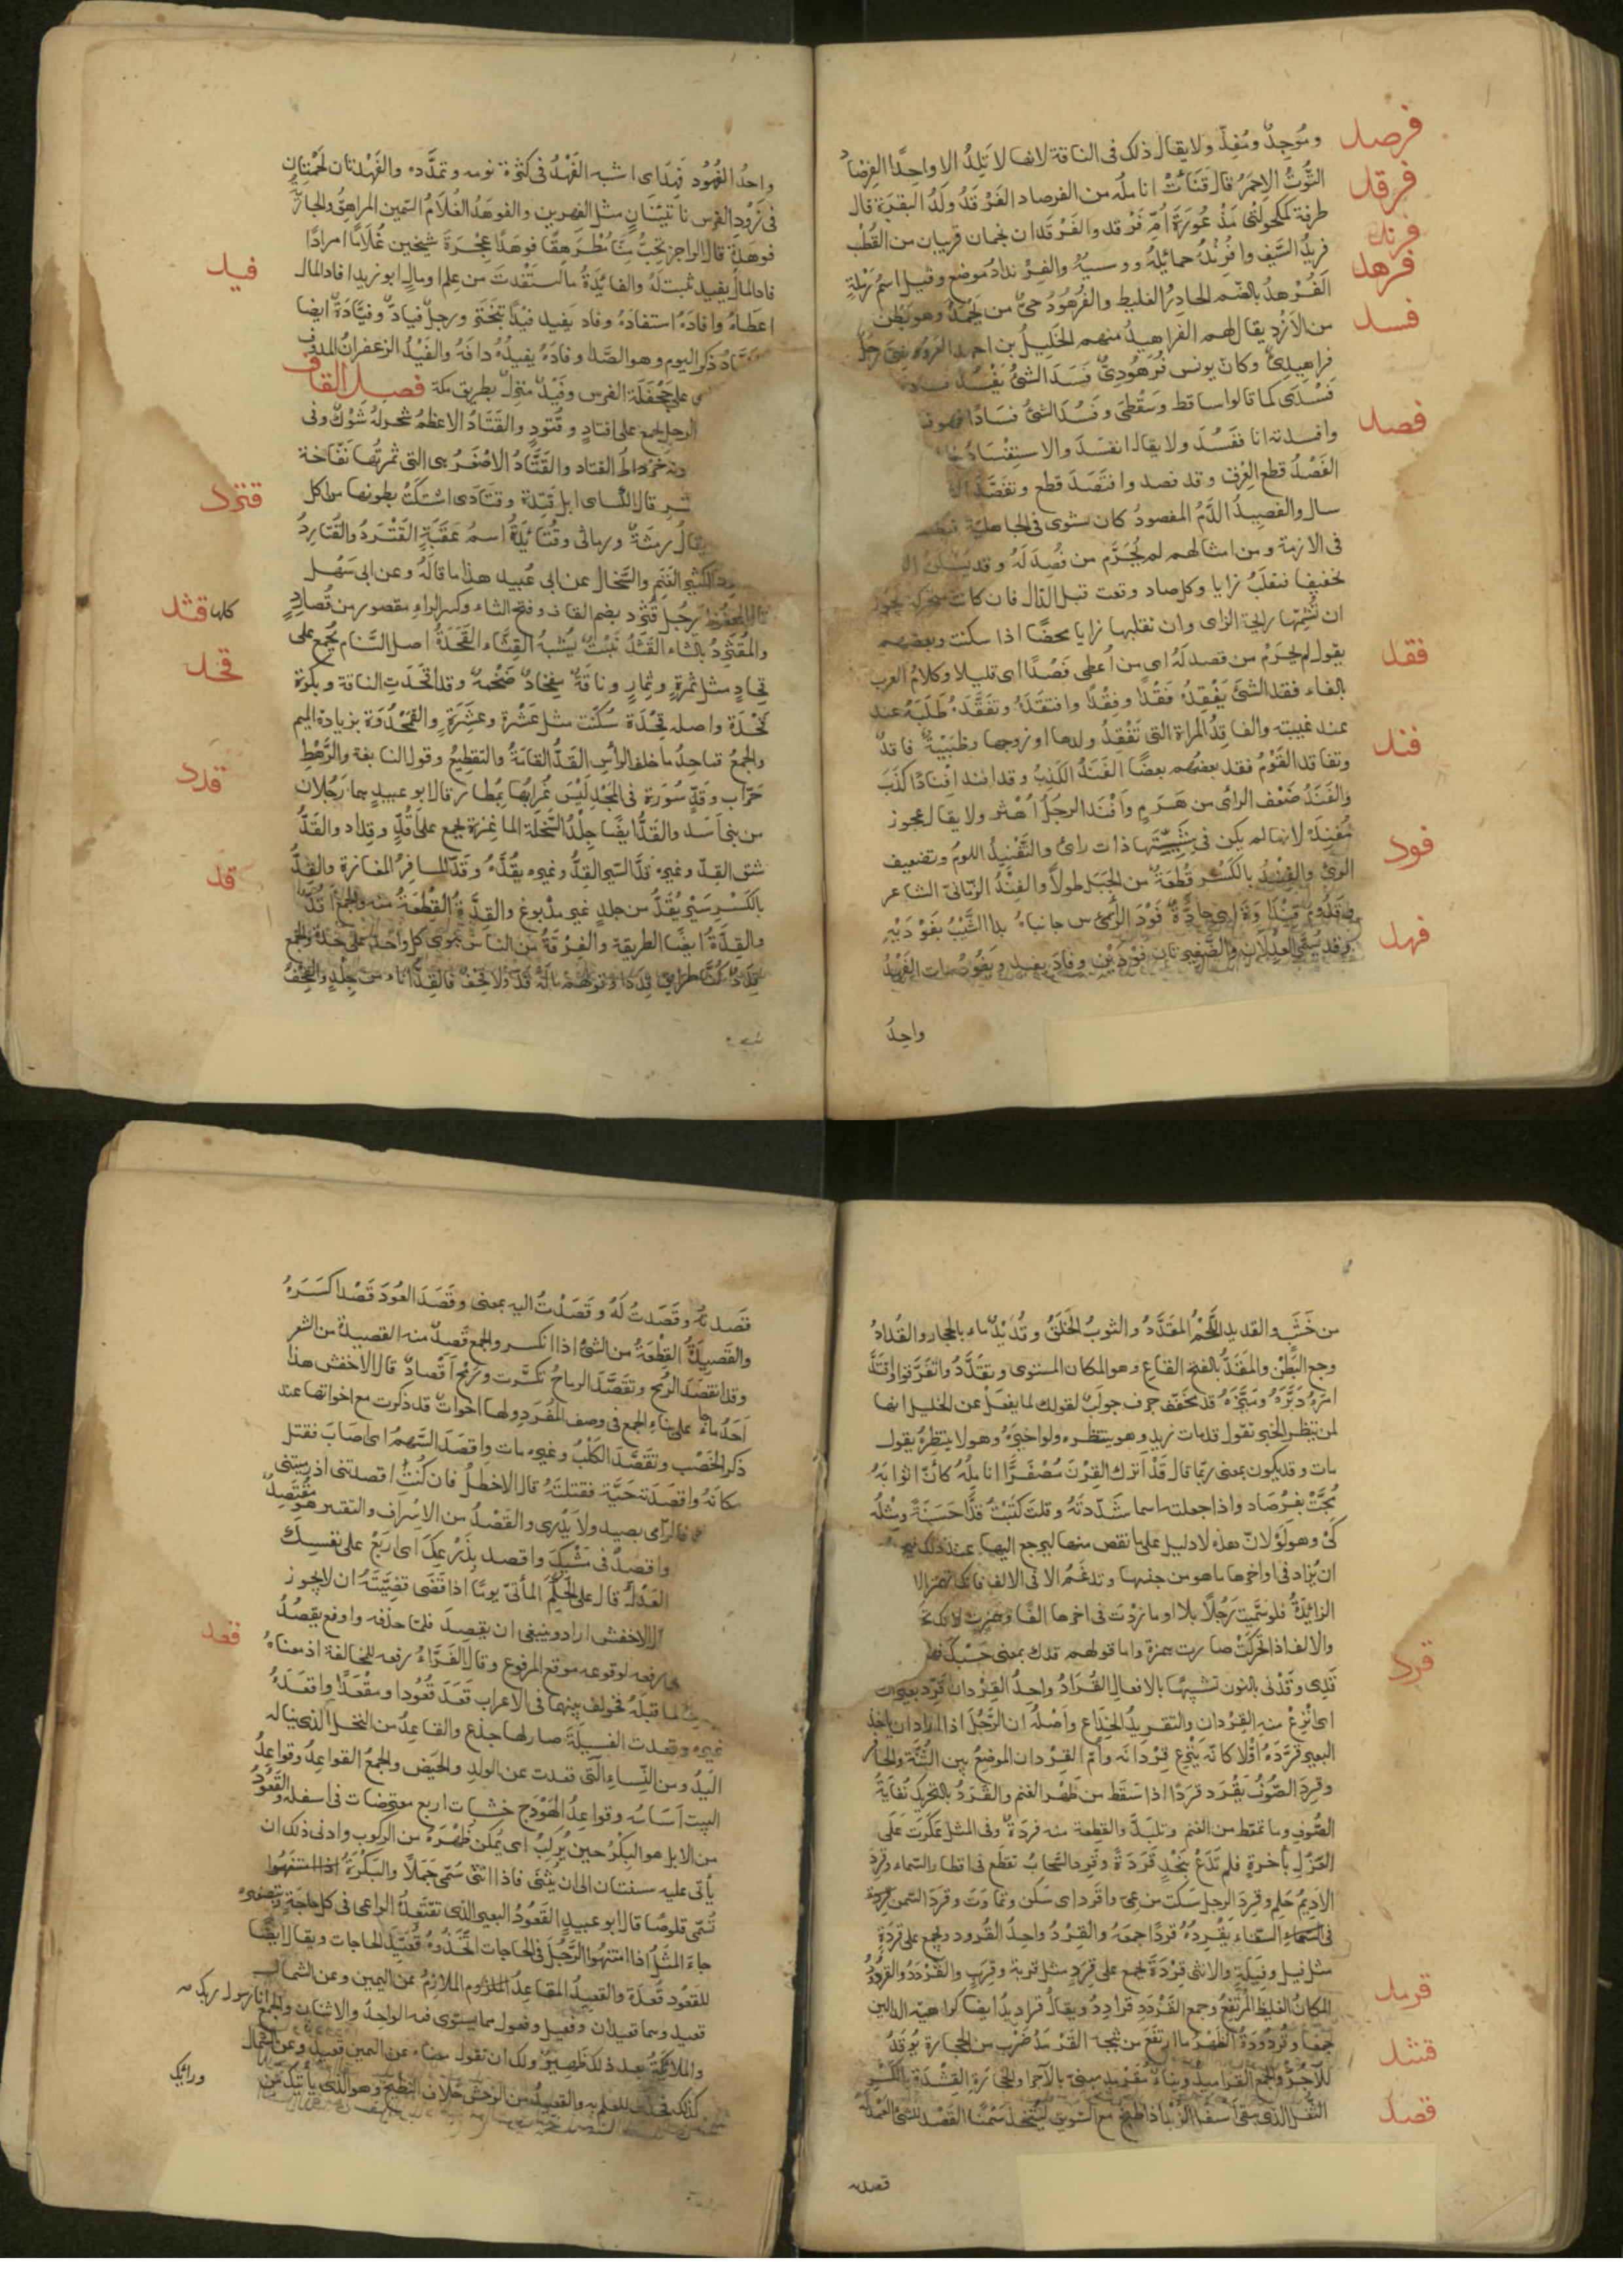 فرصد
ومُوجِدٌ ومُفِذٌّ ولا يقال ذلك فى الناقة لانها لا تَلِدُ الا واحدًا الفِرْصادُ
فرقد
التُّوتُ الاحمَرُ قال قَنَأَتْ اناملُه من الفرصاد الفَرْقَدُ ولَدُ البقرَة قال
فرند
طرفة كمكحولتَى مَذْعُورَةٍ اُمِّ فَرْقد والفَرْقدان نجمان قريبان من القُطْب
فرهد
فِرِنْدُ السَّيف وافْرِنْدُهُ ووسيُهُ والفِرِنْدادُ موضع وقيل اسمُ رَمْلةٍ
الفُرْهدُ بالضم الحادِرُ الغليظ والفُرْهُودُ حىٌّ من يَحْمَدُ وهو بَطْن
فسد
من الأزْدِ يقال لهم الفراهيدُ منهم الخليلُ بن احمد العروضى رَجُل
فراهيدىٌّ وكان يونس فُرْهُودِىٌّ فَسَدَ الشئُ يَفْسُدُ
فَسْدَى كما قالوا ساقط وسَقْطَى وفَسُدَ الشئُ فسَادًا فهو
فصد
وافسدته انا ففَسُدَ ولا يقال انفسَدَ والاستِفْسَادُ
الفَصْدُ قطع العِرْق وقد فصد وافتَصَدَ قطع وتفَصَّدَ
سال والفصِيدُ الدَّمُ المفصودُ كان يشوى فى الجاهلية
فى الازمة ومن امثالهم لم يُحْرَم من فُصِدَ لَهُ وقد يُسَكَّنُ
تخفيفا فتقلَبُ زايا وكل صاد وقعت قبل الدال فان كانت متحركة يجوز
ان تُشِمَّها رايحة الزاى وان تقلبها زايا محضًا اذا سكنت وبعضهم
فقد
يقول لم يحرَمْ من قصد لَهُ اى من اُعطى قَصْدًا اى قليلا وكلامُ العرب
بالفاء فقد الشئَ يَفْقِدُهُ فَقْدًا وفِقْدًا وافتقَدَهُ وتفَقَّدَهُ طَلَبَهُ عند
عند غيبته والفاقِدُ المراة التى تَفْقِدُ ولدها او زوجها وظَبْيَةٌ فاقِدٌ
فند
وتفاقد القَوْمُ فقد بعضهم بعضًا الفَنَدُ الكَذِبُ وقد افند افنادًا كَذَبَ
والفَنَدُ ضَعْف الراى من هَرَمٍ وافنَد الرجلُ اهْتر ولا يقال عجوز
فود
مُفْنِدَة لانها لم يكن فى شَبِيْبَتها ذات رأى والتَّفْنِيدُ اللومُ وتضعيف
الرأى والفِنْدُ بالكسر قطعةٌ من الجَبَل طولاً والفِنْدُ الزِّمّانىّ الشاعر
فَوْدُ الرَّاسِ جانباهُ بدا الشَّيْبُ بفَوْدَيْهِ
فهد
وقد يُسمَّى العِدْلان فَوْدَيْن وفادَ يفيد ويفودُ مات الفَهْدُ
واحِدُ
واحدُ الفُهُودِ فَهِدَ اى اشبه الفَهْدُ فى كثرة نومه وتمدُّده والفَهْدتان لَحْمَتان
فى زَوْرِ الفرس ناتيتان مثل الفِهرين والفَوهَدُ الغُلامُ السَّمين المراهِقُ والجارِيَةُ
فوهَدةٌ قال الراجز تُحِبُّ مِنّا مُطْرَهِفًّا فوهَدًا عِجْزَةَ شيخين غُلامًا امرَدًا
فيد
فادَ المالُ يَفيد ثبت لَهُ والفائدةُ ما استَفدْتَ من علم او مال ابو زيد افاد المال
اعطاهُ وافادَهُ استفادَهُ وفاد يفيد فَيْدًا تبَخْتَر ورجلٌ فيّادٌ وفيّادَةٌ ايضا
ذكر البوم وهو الصَّدا وفادَهُ يفيدُهُ دافَهُ والفَيْدُ الزعفرانُ المدوف
على جَحْفَلَة الفرس وفَيْدٌ منزلٌ بطريق مكة فصل القاف
الرجل الجمع على اقتادٍ وقُتُودٍ والقَتَادُ الاعظمُ شجر لهُ شَوْك وفى
خَرْطُ القتاد والقَتَادُ الاصْغَرُ هى التى ثمرتُها نَفّاخة
قال الكسائى ابل قَتِدَة وقَتَادَى اشتكَتْ بطونها من اكل
قترد
يقالُ رِمثةٌ ورماثى وقُتائدةُ اسمُ عَقَبَةٍ القَتْرَدُ والقُتارِدُ
الكثير الغَنَمِ والسِّخال عن ابى عُبيد هذا ما قالَهُ وعن ابى سَهْل
قثد
المحفوظ رجل قُثَرِد بضم القاف وفتح الثاء وكسر الراء مقصور من قُثَارِدٍ
كلها
والمُقَثْرِدُ بالثاء القَثَدُ نَبْتٌ يُشبهُ القِثّاء القَحَدَةُ اصل السَّنام يُجمع على
قحد
قِحَادٍ مثل ثَمَرةٍ وثِمارٍ وناقةٌ مِقحادٌ ضخمةٌ وقد اقحَدَتِ الناقة وبكرة
قَحْدَة واصله قَحِدَة سُكّنت مثل عَشْرة وعشِرَةٍ والقَمَحْدُوَة بزيادة الميم
والجمعُ قماحِدُ ما خلف الراس القَدُّ القامَةُ والتقطيعُ وقول النابغة والرَّهْط
قدد
حَرّاب وقَدٍّ سُورَة فى المَجْدِ لَيْسَ غُرابُها بمُطار قال ابو عبيدٍ هما رَجُلان
من بنى اسَد والقَدُّ ايضًا جِلْدُ السَّخلَة الماعِزة يجمع على اَقُدٍّ وقِداد والقَدُّ
قد
شق القِدّ وغيرهِ قدَّ السّير القِدَّ وغيره يقُدُّهُ وقَدَّ المسافِرُ المفازة والقِدُّ
بالكَسْرِ سَيْرٌ يُقَدُّ من جلدٍ غير مدبوغ والقِدَّةُ القِطْعةُ منه والجمعُ
والقِدَّةُ ايضًا الطريقة والفِرْقةُ من الناس هوى كل واحد على حِدة والجمع
قِدَدٌ كُنّا طرايق قِدَدًا وقولهم مالَهُ قِدٌّ ولا قِحْفٌ فالقِدُّ اناء من جِلدٍ والقِحْفُ
من خَشَبٍ والقديد اللَّحْمُ المقدَّدُ والثوبُ الخَلَقُ وقُدَيْدٌ ماء بالحجاز والقُدادُ
وجع البَطْن والمَقَدُّ بالفتح القاعُ وهو المكان المستوى وتقَدَّدُوا تفَرَّقوا واقتَدَّ
امرَهُ دَبَّرَهُ ومَيَّزَهُ قد مخفّف حرف جوابٌ لقولك لما يفعَلْ عن الخليل انها
لمن ينتظر الخبر تقول قد مات زيد وهو ينتظره ولو اخبَرَهُ وهو لا ينتظرهُ يقول
مات وقد يكون بمعنى ربما قال قَدْ اترك القِرْنَ مُصْفَرًّا اناملُهُ كأنّ اثوابَهُ
مُجَّتْ بفِرْصَادِ واذا جعلته اسما شدّدتَهُ وقلتَ كتَبْتُ قدًّا حَسَنَةً ومثلُه
كَىْ وهو ولَوْ لانّ هذه لا دليل على ما نقص منها ليرجع اليها عند ذلك
ان يُزادَ فى اواخرها ما هو من جنسها وتدغَمُ الا فى الالف فانك تهمز
الزائدةُ فلو سَمَّيتَ رَجُلاً بلا او ما زدْتَ فى اخرها الفًا وهمزت لانك
والالف اذا تحرَّكَتْ صارت همزة واما قولهم قدك بمعنى حَسْبُكَ
قرد
قَدِى وقَدْنى بالنون تشبيهًا بالافعال القُرَادُ واحدُ القِرْدان قَرِّدْ بعيرك
اى انْزِعْ منه القِردان والتقريدُ الخِداع واَصْلُهُ ان الرَّجُلَ اذا اراد ان ياخذ
البعير قَرَّدَهُ اوَّلا كانّه ينزع قِرْدانَه واُمّ القِرْدان الموضعُ بين الثُّنَّة والحافر
وقَرِدَ الصُّوفُ يَقْرَد قرَدًا اذا سَقَط من ظَهْر الغنم والقَرَدُ بالتحريك نُفايَةُ
الصُّوف وما تمعّط من الغنم وتلبَّدَ والقِطعة منه قَرَدةٌ وفى المثل عَكَرَتْ عَلَى
الغَزْلِ بأَخَرةٍ فلم تَدَعْ بنَجْدٍ قَرَدَةً وقَرِد السّحابُ تقطّع فى اقطار السماء وقَرِدَ
الاديمُ حَلِم وقَرِدَ الرجل سَكت من عِىّ واَقرَد اى سَكن وتماوَتَ وقَرَدَ السَّمن
فى السِّقاء يَقْرِدُهُ قَردًا جمَعَهُ والقِرْدُ واحِدُ القُرود ويجمع على قِرَدَةٍ
مثل فيل وفِيَلَةٍ والانثى قِرْدَةٌ تجمع على قِرَدٍ مثل قِربة وقِرَبٍ والقَرْدَدُ والقُردُودُ
قرمد
المكانُ الغليظ المُرْتفعُ وجمع القَرْدَدِ قَرادِدُ ويقالُ قَراديدُ ايضا كراهية الدالين
قشد
وقُرْدُودَةُ الظَّهْر ما ارتَفع من ثَبَجِه القَرْمَدُ ضَرْب من الحجارة يُوقَدُ
وبناءٌ مُقَرْمَدٌ مبنىّ بالآجر او بالحجارَةِ القِشْدَةُ بالكسر
قصد
الثُّفْل الذى يبقى اسفل الزُّبد اذا طبخ مع السَّوِيق ليُتّخذ سَمْنًا القَصْدُ
قصدته
قَصدتُه وقَصَدتُ لَهُ وقَصَدْتُ اليه بمعنى وقَصَدَ العُودَ قَصْدًا كَسَرَهُ
والقَصِيدَةُ القِطْعَةُ من الشئ اذا انكسر والجمع قِصَدٌ منه القصيدة من الشعر
وقد انقصَدَ الرُّمح وتقصَّدَ الرماحُ تكسَّرت ورُمْح اَقْصادٌ قال الاخفش هذا
اَحَدُ ما جاء على بناءِ الجمع فى وصف المُفرَدِ ولها اخواتٌ قد ذكرت مع اخواتها عند
ذكر الخَصْب وتقَصَّدَ الكَلْبُ وغيره مات واقصَدَ السَّهمُ اى اصَابَ فقتل
مكانَهُ واقصَدَته حَيَّة فقتلَتْهُ قال الاخطلُ فان كُنْتُ اقصدتنى اذ رميتنى
فالرّامى يصيد ولا يَدْرى والقَصْدُ من الاسْراف والتقتير هو مُقتَصِدٌ
واقصِدْ فى مَشْيِكَ واقصد بذَرْعِكَ اى اربَعْ على نفسِكَ
العَدْلُ قال على الحَكَمِ المأتىّ يومًا اذا قَضَى قَضِيَّتَهُ ان لا يجوز
قعد
الاخفش اراد وينبغى ان يقصِدَ فلمّا حذفه واوقع يقصدُ
رفعه لوقوعه موقع المرفوع وقال الفَرّاءُ رفعه للمخالفة اذ معناهُ
لما قبلَهُ فخولف بينهما فى الاعراب قَعَدَ قُعُودًا ومَقْعَدًا واقعَدَهُ
غيره وقعدت الفسيلَةُ صار لها جذع والقاعِدُ من النخل الذى ينالُه
اليَدُ ومن النِّساءِ الّتى قعدت عن الولدِ والحيض والجمعُ القواعِدُ وقواعِدُ
البيت اَسَاسُه وقواعِدُ الهَوْدَج خشبات اربع معترضات فى اسفله والقَعُودُ
من الابل هو البِكْرُ حين يُركَبُ اى يُمكن ظَهْرَهُ من الركوب وادنى ذلك ان
يأتى عليه سنتان الى ان يُثْنى فاذا اثنى سُمّى جَمَلاً والبَكْرَةُ
تُسَمّى قلوصًا قال ابو عبيدٍ القَعُودُ البعير الذى تقتَعِدُهُ الراعى فى كل حاجَةٍ
جاءَ المثَلُ اذا امتهنوا الرَّجُلَ فى الحاجات اتَّخَذُوهُ قُعَيِّدَ الحاجات ويقال ايضًا
للقعُود قُعدَة والقعيدُ المقاعِدُ الملازِمُ عن اليمين وعن الشمال
قعيد وهما قعيدان وفعيل وفعول مما يستوى فيه الواحدُ والاثنان والجمع
انا رسول ربك
والملائكةُ بعد ذلك ظهير ولك ان تقول معناه عن اليمين قعيدٌ وعن الشمال
كذلك والقعيدُ من الوحش خلاف النطيح وهو الذى يأتيك من
ورائك